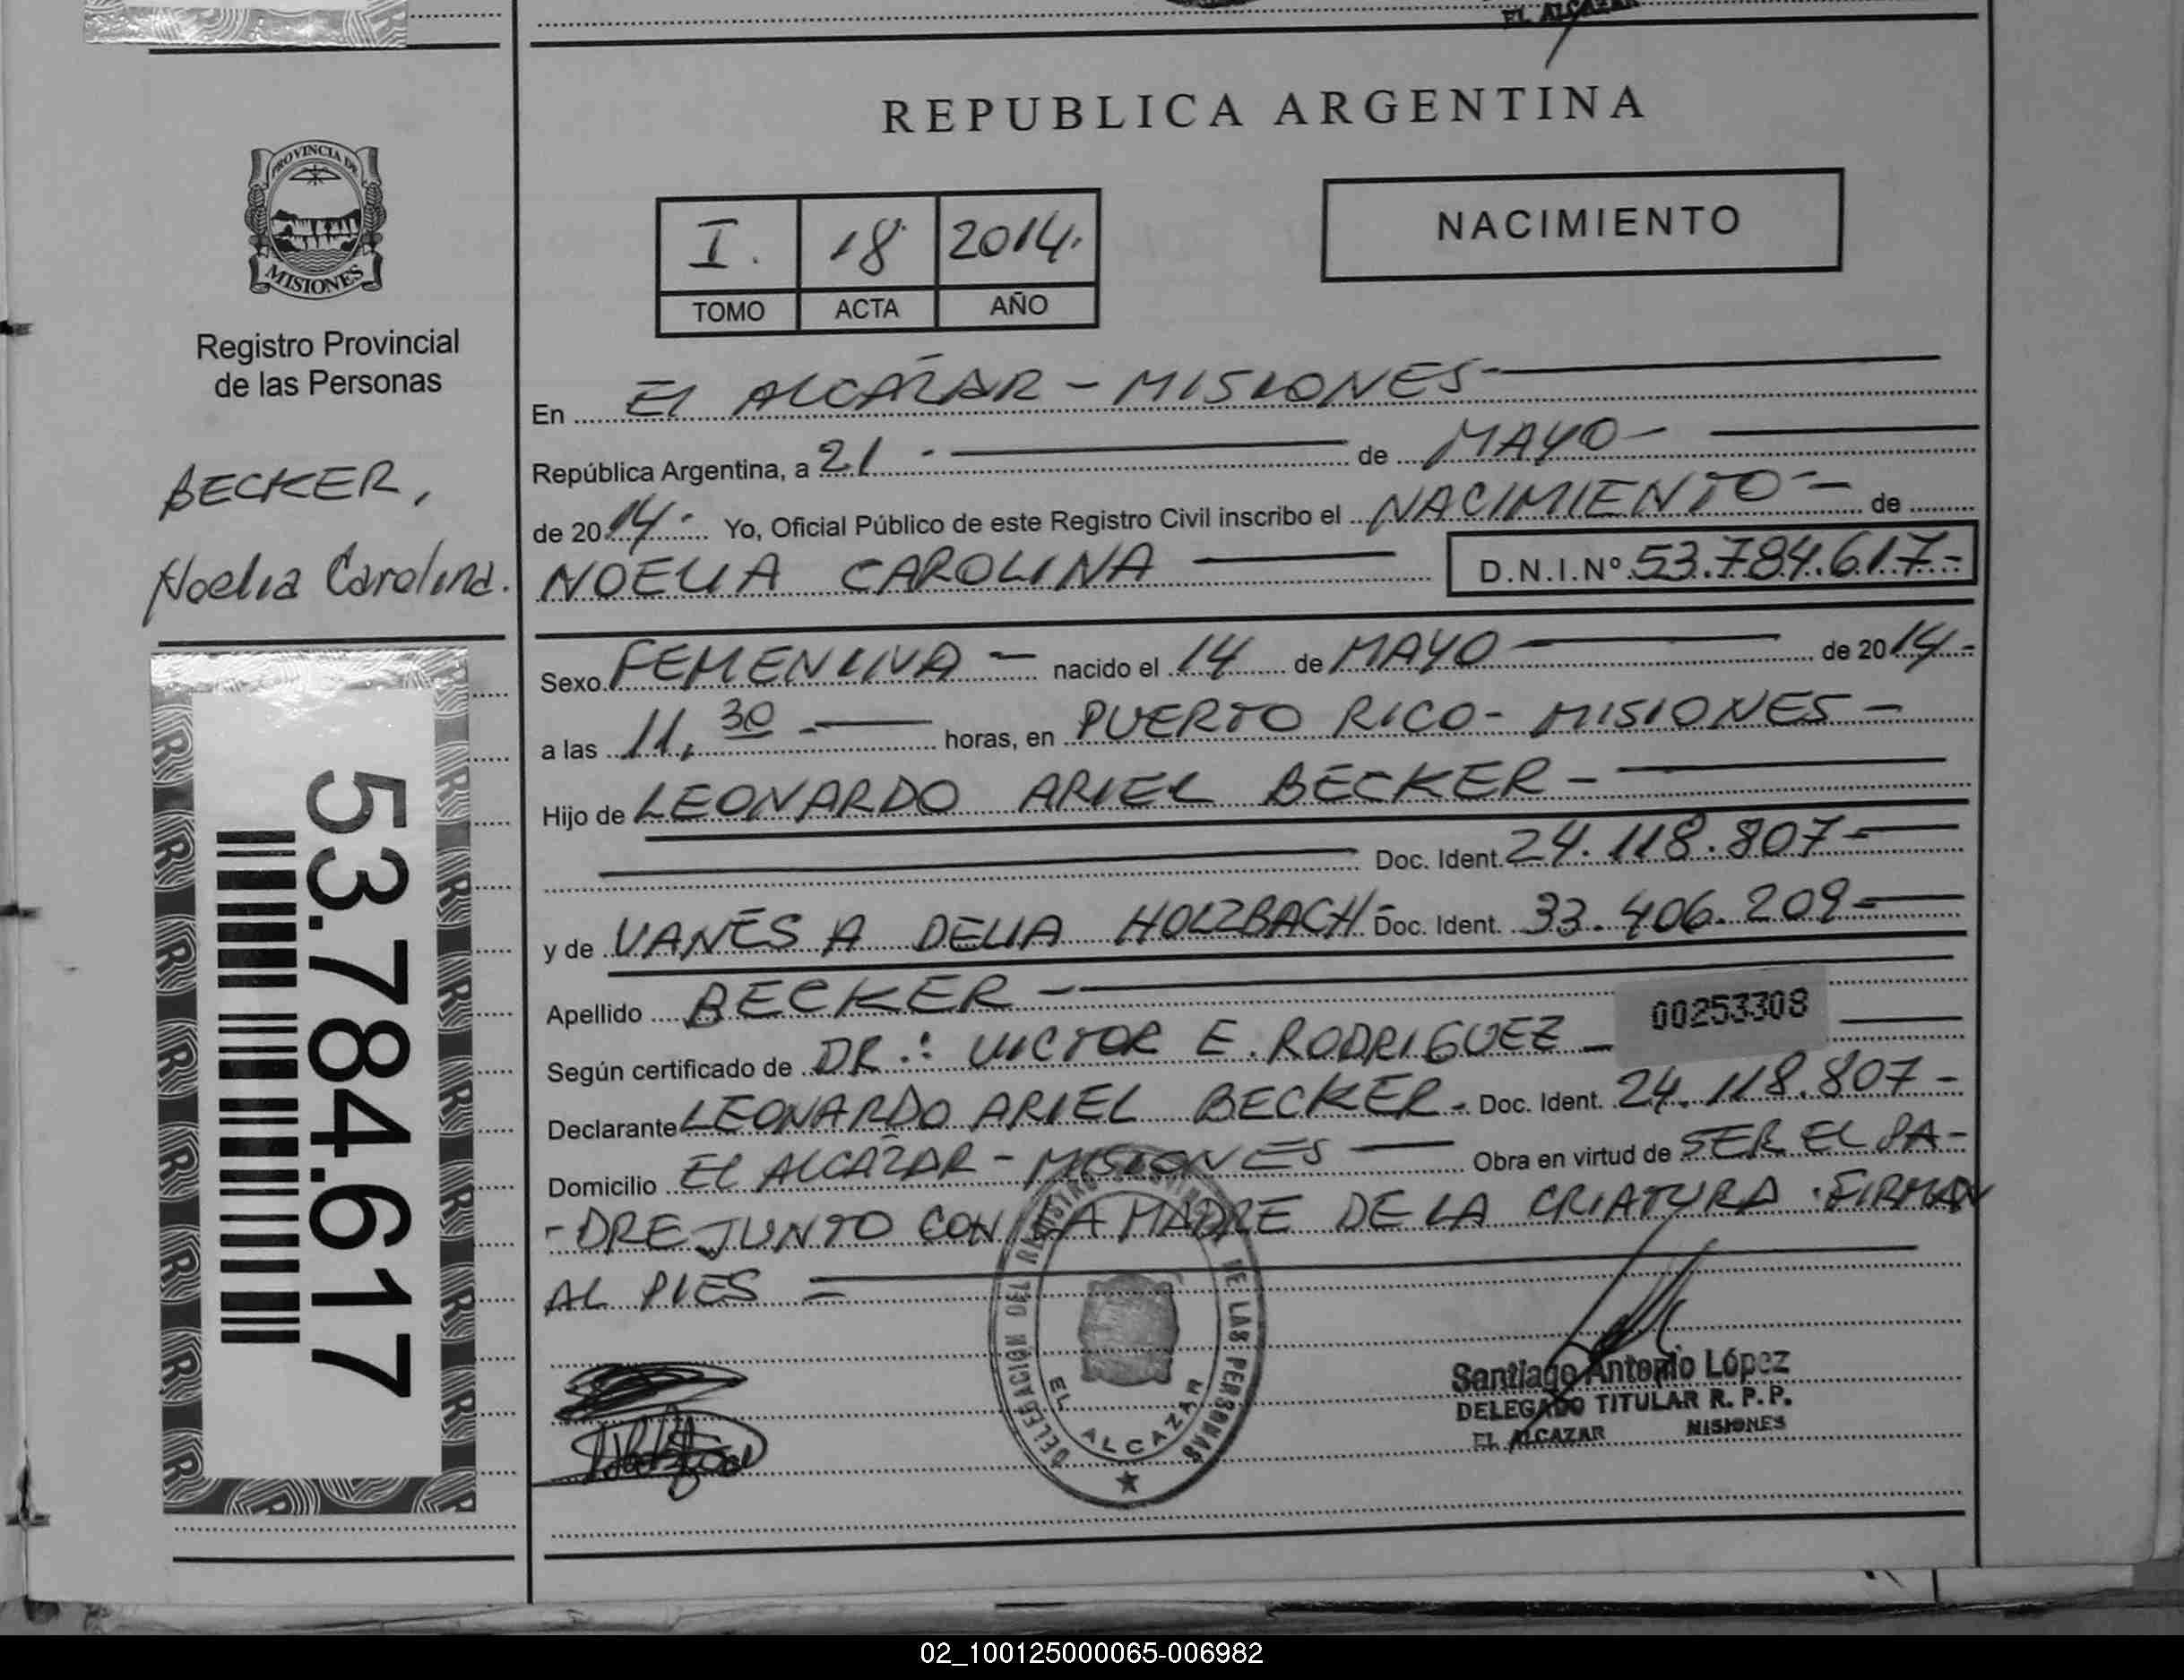 EL ALCAZAR
REPUBLICA ARGENTINA
PROVINCIA DE
MISIONES
Registro Provincial
de las Personas
BECKER,
Noelia Carolina.
53.784.617
I. 18 2014.
TOMO ACTA AÑO
NACIMIENTO
En El ALCAZAR - MISIONES -
República Argentina, a 21 - de MAYO -
de 2014 - Yo, Oficial Público de este Registro Civil inscribo el NACIMIENTO - de
NOELIA CAROLINA D.N.I.Nº 53.784.617-
Sexo FEMENINA - nacido el 14 de MAYO de 2014-
a las 11,30 - horas, en PUERTO RICO - MISIONES -
Hijo de LEONARDO ARIEL BECKER -
Doc. Ident. 24.118.807-
y de VANESA DELIA HOLZBACH- Doc. Ident. 33.406.209-
Apellido BECKER -
Según certificado de DR.: VICTOR E. RODRIGUEZ - 00253308
Declarante LEONARDO ARIEL BECKER - Doc. Ident. 24.118.807-
Domicilio EL ALCAZAR - MISIONES Obra en virtud de SER EL PA-
-DRE JUNTO CON LA MADRE DE LA CRIATURA. FIRMAN
AL PIES =
DELEGACION DEL REGISTRO PROVINCIAL DE LAS PERSONAS
EL ALCAZAR
Santiago Antonio López
DELEGADO TITULAR R. P. P.
EL ALCAZAR MISIONES
02_100125000065-006982